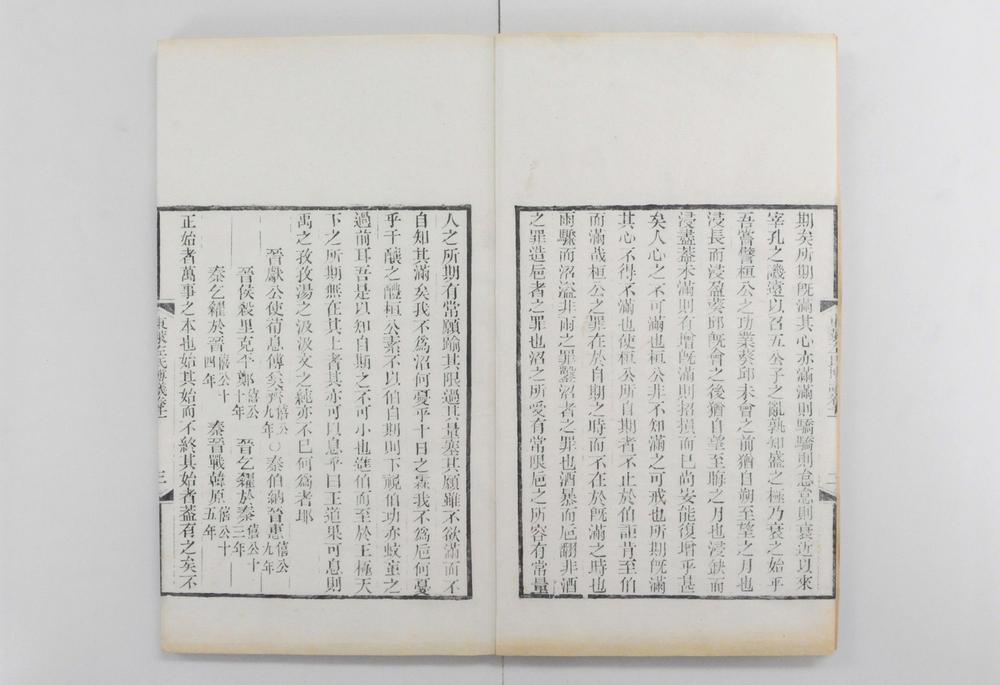 期矣所期既滿其心亦滿滿則驕驕則怠怠則衰近以來
宰孔之譏遠以召五公子之亂孰知盛之極乃衰之始乎
吾嘗譬桓公之功業葵邱未會之前猶自朔至望之月也
浸長而浸盈葵邱既會之後猶自望至晦之月也浸缺而
浸盡蓋未滿則有增既滿則招損而已尚安能復增乎甚
矣人心之不可滿也桓公非不知滿之可戒也所期既滿
其心不得不滿也使桓公所自期者不止於伯詎肯至伯
而滿哉桓公之罪在於自期之時而不在於既滿之時也
雨驟而沼溢非雨之罪鑿沼者之罪也酒暴而巵翻非酒
之罪造巵者之罪也沼之所受有常限巵之所容有常量
人之所期有常願踰其限過其量塞其願雖不欲滿而不
自知其滿矣我不爲沼何憂乎十日之霖我不爲巵何憂
乎千釀之醴桓公素不以伯自期則下視伯功亦蚊䖟之
過前耳吾是以知自期之不可小也進伯而至於王極天
下之所期無在其上者其亦可以息乎曰王道果可息則
禹之孜孜湯之汲汲文之純亦不已何爲者耶
晉獻公使荀息傅奚齊僖公九年○秦伯納晉惠僖公九年
晉侯殺里克丕鄭僖公十年 晉乞糴於秦僖公十三年
秦乞糴於晉僖公十四年 秦晉戰韓原僖公十五年
正始者萬事之本也始其始而不終其始者蓋有之矣不